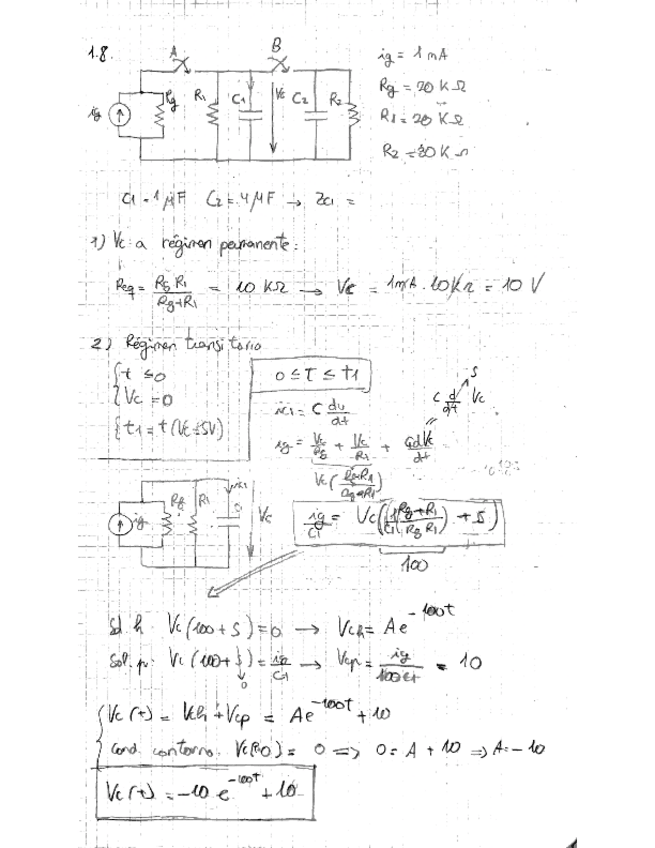 1.8.
A
B
ig
Rg
R1
C1
Vc
C2
R2
ig = 1 mA
Rg = 20 KΩ
R1 = 20 KΩ
R2 = 20 KΩ
C1 = 1 μF C2 = 4 μF → Zc1 =
1) Vc a régimen permanente:
Req = Rg R1 / Rg+R1 = 10 KΩ → Vc = 1mA · 10KΩ = 10 V
2) Régimen transitorio
t ≤ 0
Vc = 0
t1 = t (Vc = 5V)
0 ≤ t ≤ t1
ic1 = C du/dt
C d/dt Vc
S
ig = Vc/Rg + Vc/R1 + C1 dVc/dt
ig
Rg
R1
ic1
Vc
ig/C1 = Vc (1/C1 (Rg+R1 / Rg R1) + S)
100
Sol. h. Vc (100 + S) = 0 → Vch = A e^-100t
Sol. p. Vc (100 + S) = ig/C1 → Vcp = ig/100 C1 = 10
0
Vc (t) = Vch + Vcp = A e^-100t + 10
cond. contorno. Vc(t=0) = 0 ⇒ 0 = A + 10 ⇒ A = -10
Vc (t) = -10 e^-100t + 10